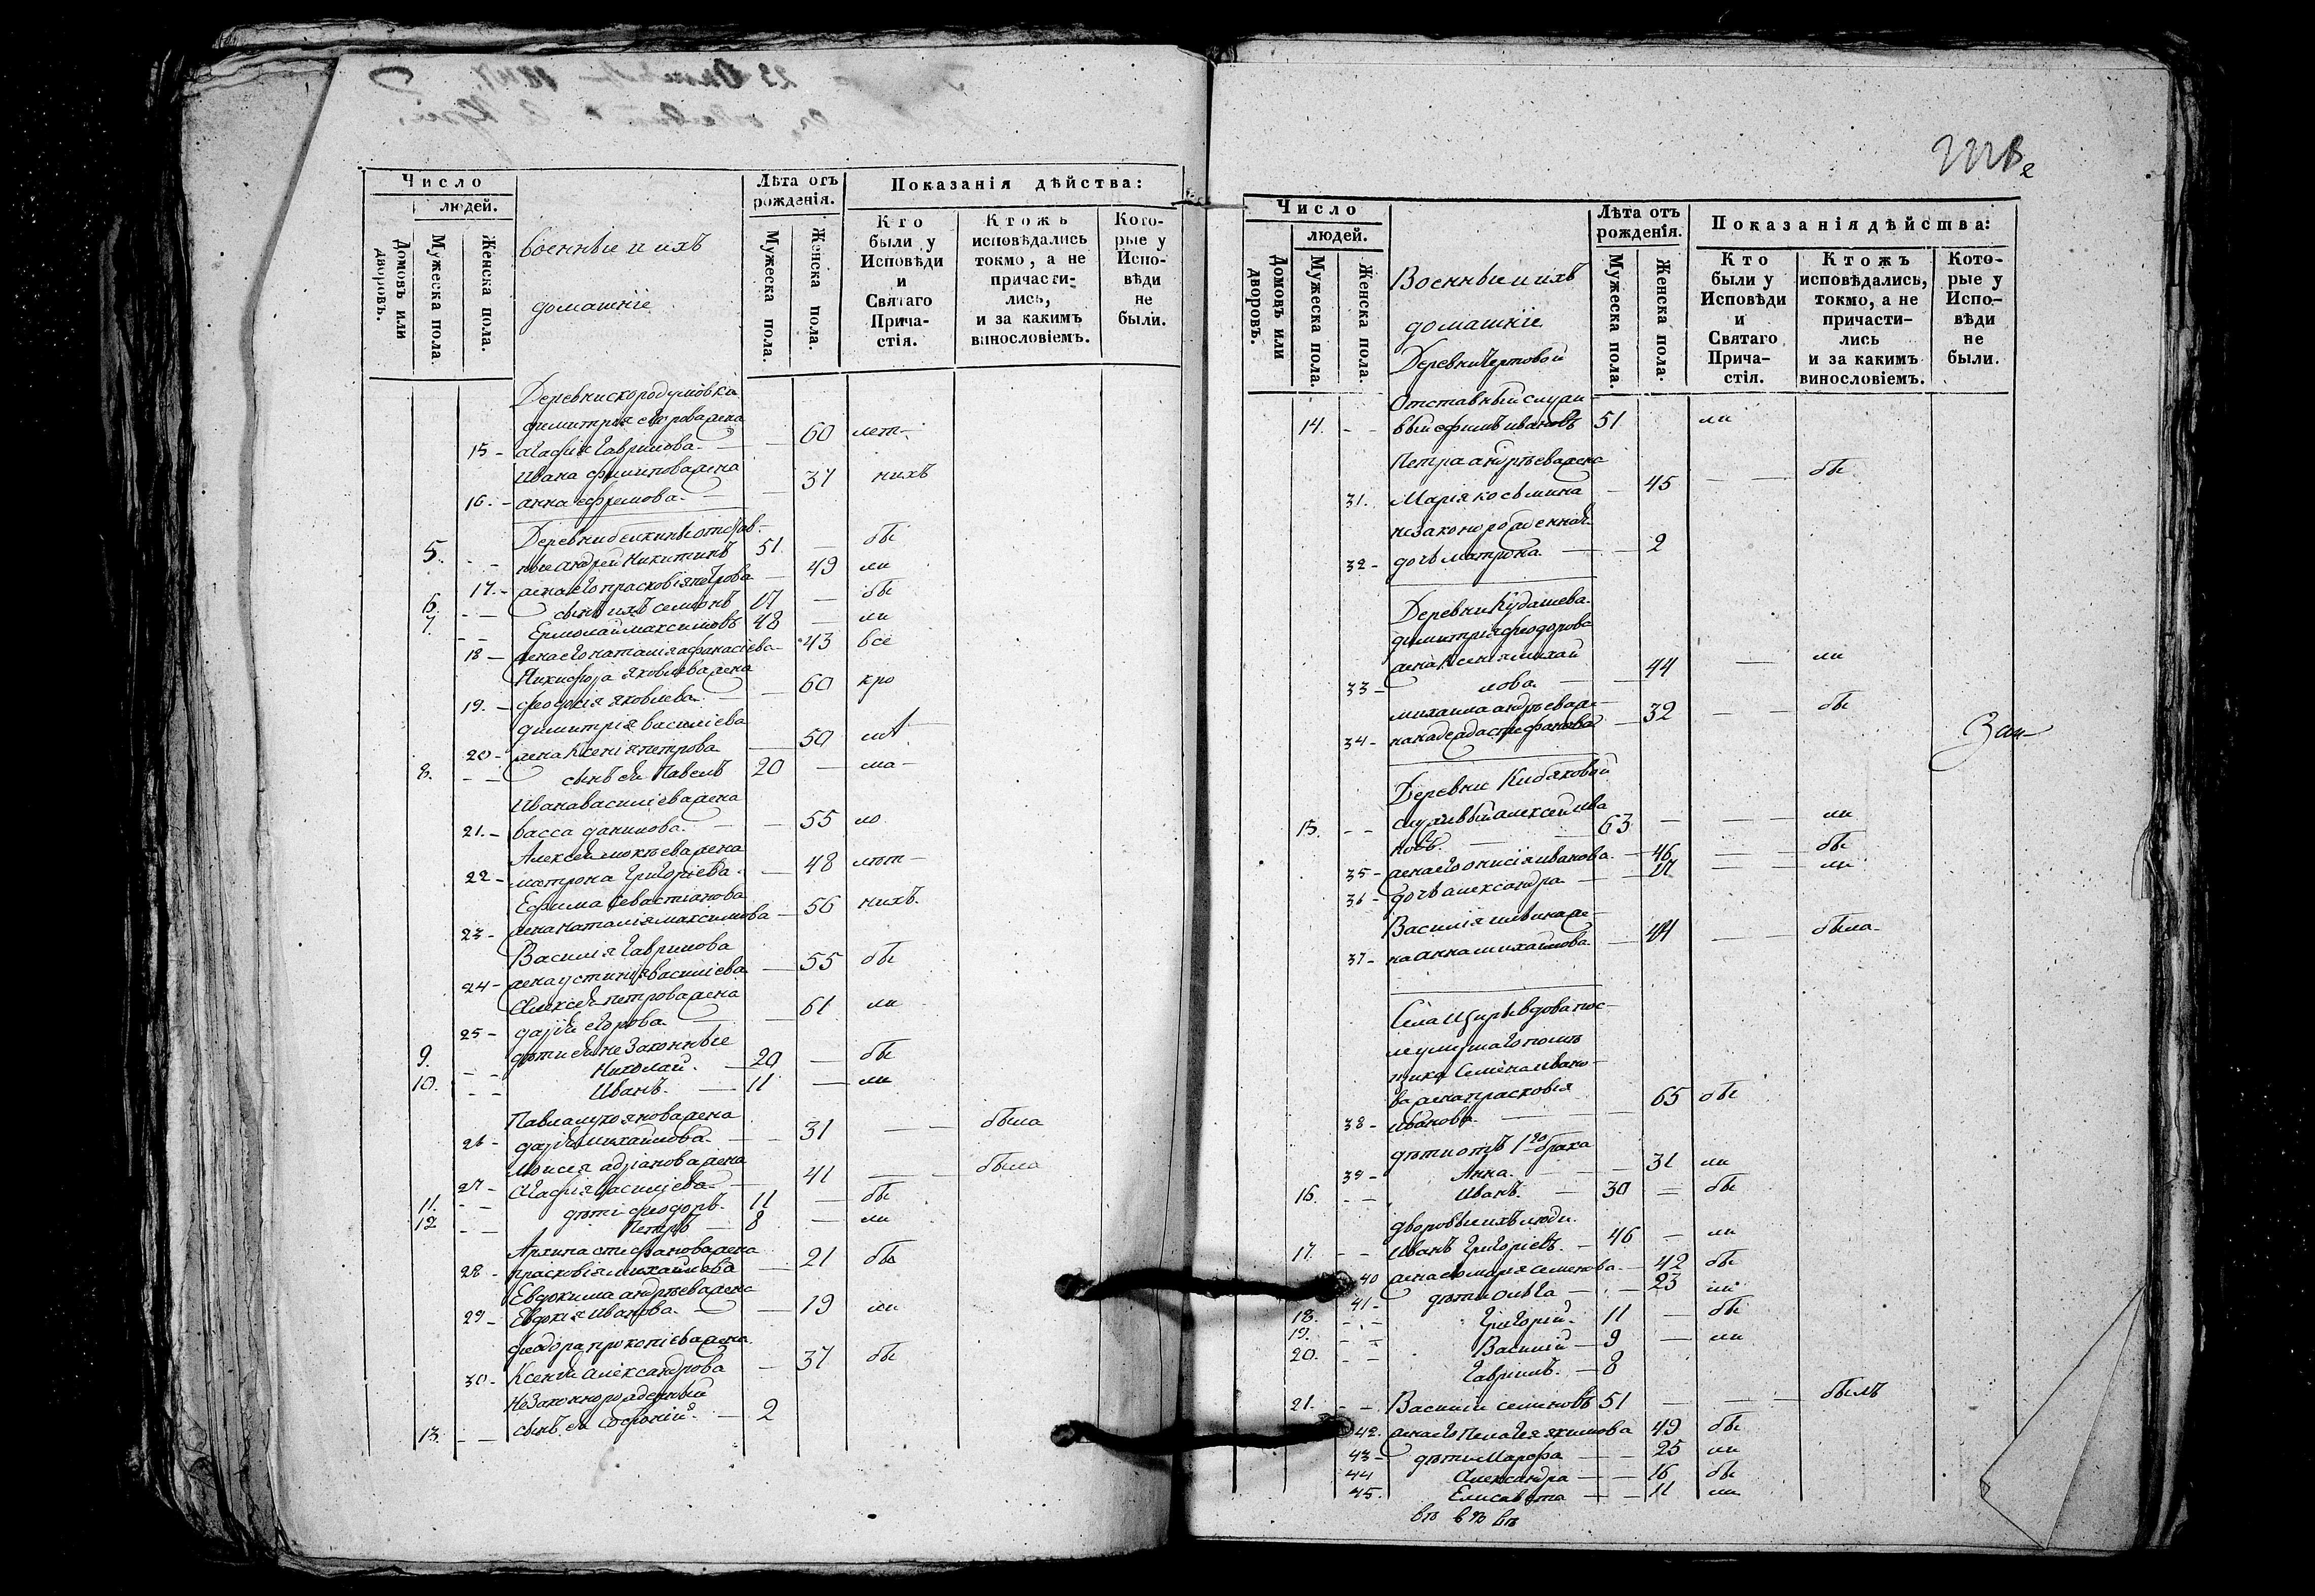 Число
людей.
Домовъ или дворовъ.
Мужеска пола.
Женска пола.
военные и ихъ
домашніе
Лѣта отъ рожденія.
Мужеска пола.
Женска пола.
Показанія дѣйства:
Кто были у Исповѣди и Святаго Причастія.
Ктожъ исповѣдались токмо, а не причастились, и за какимъ винословіемъ.
Которые у Исповѣди не были.
Деревни скородумовки
димитрія егорова жена
15 - агафія Гаврилова - 60
ивана филипова жена
16. - анна ефремова - 37 нихъ
Деревни белкины отстав-
5. - - ные андрей Никитинъ 51 - бы
17. - жена его прасковія петрова - 49 ли
6. - - сынъ ихъ семіонъ 17 - бы
7. - - Ермолай максимовъ 48 - ли
18 - жена его наталія афанасіева - 43 все
Никифора яковлева жена
19. - феодосія яковлева - 60 кро
димитрія василіева
20 - жена Ксенія петрова - 50
8. - - сынъ ея Павелъ 20 - ма-
ивана василіева жена
21. - васса данилова - 55 ло
Алексея мокѣева жена
22 - матрона григоріева - 48 лѣт-
Ефима севастіанова
23 - жена наталія максимова - 56 нихъ.
Василія Гаврилова
24 - жена устинія василіева - 55 бы
Алексея петрова жена
25 - дарія егорова - 61 ли
дѣти ея не законные
9. - - Николай - 20 - бы
10. - - Иванъ. - 11 - ли
Павла лукоянова жена
26 - дарія михаилова - 31 - была
моисея адріанова жена
27 - Агафія василіева - 41 - была
11. - - дѣти феодоръ. 11 - бы
12 - - Петръ - 8 - ли
Архипа стефанова жена
28 - прасковія михаилова - 21 бы
Евдокима андреева жена
29 - Евдокія иванова - 19 ли
феодора прокопіева жена
30 - Ксенія александрова - 37 бы
Незаконнорожденный
13. - - сынъ ея Софроній - 2
Число
людей.
Домовъ или дворовъ.
Мужеска пола.
Женска пола.
Военные и ихъ
домашніе
Лѣта отъ рожденія.
Мужеска пола.
Женска пола.
Показанія дѣйства:
Кто были у Исповѣди и Святаго Причастія.
Ктожъ исповѣдались, токмо, а не причастились и за какимъ винословіемъ.
Которые у Исповѣди не были.
Деревни Чертовой
Отставный служи
14. - - вый ефимъ ивановъ 51 ли
Петра андреева жена
31. Марія косьмина - 45 - - бы
незаконорожденная
32 - дочь матрона - - 2
Деревни Кудашева.
димитрія феодорова
жена Ксенія михай
33 - лова - - 44 - ли
михаила андреева же
34 - на надежда стефанова - 32 - - бы
Зан-
Деревни Кибяковой
служивый алексей ива
15. - - новъ. - 63 - - ли
35 - жена его онисія иванова - 46 - - бы
36 - дочь александра - - 17 - - ли
Василія ильина же-
37 - на анна михаилова - 44 - - была
Села вдова пос-
ле умершаго помѣ
щика Семена ивано-
ва жена прасковія
38 - иванова - - 65 бы
дѣти отъ 1го брака
39 - Анна. - - 31 ли
16. - - Иванъ. - 30 - бы
дворовые ихъ люди.
17. - - Иванъ григоріевъ. - 46 - ли
40 жена его марія семенова - 42 бы
41 - дѣти Ольга - - 23 ли
18. - - Григорій - 11 - бы
19. - - Василій - 9 - ли
20. - - Гавріилъ. - 8
21. - - Василій семеновъ 51 - - былъ
42. жена его Пелагея якимова 49 бы
43 - дѣти Марфа - - 25 ли
44 Александра - - 16 бы
45. Елисавета - - 11 ли